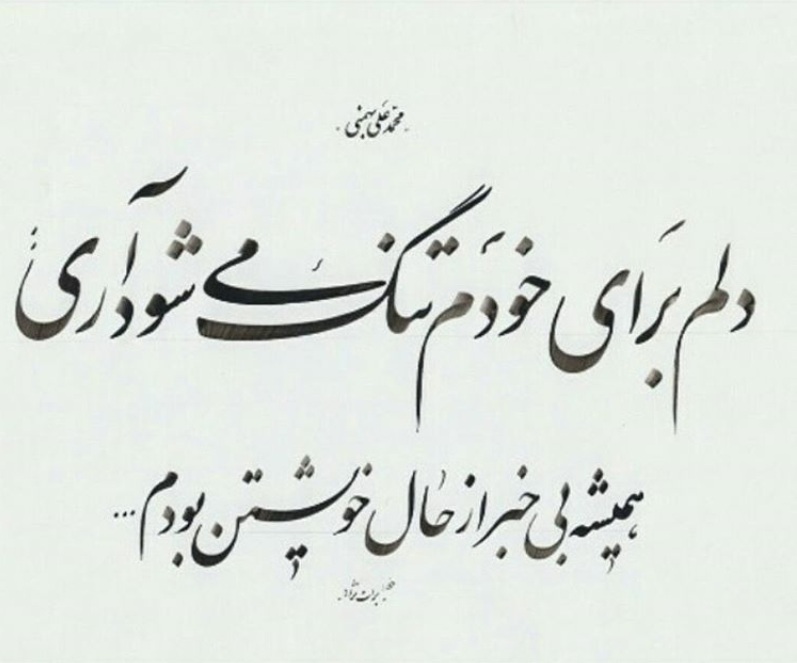 محمد علی بهمنی
دلم برای خودم تنگ می شود آری
همیشه بی خبر از حال خویشتن بودم...